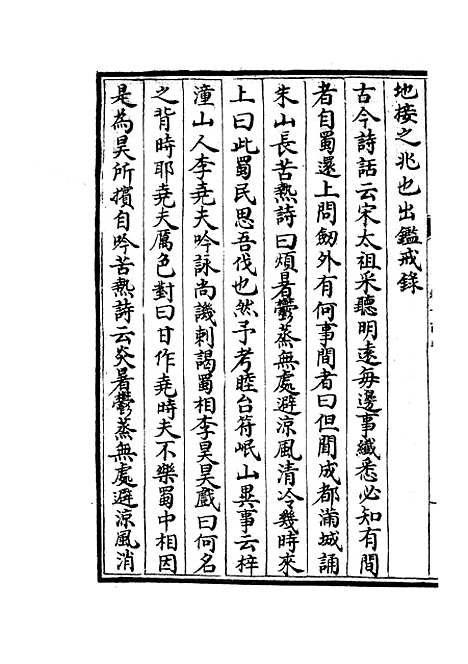 地接之兆也出鑑戒錄
古今詩話云宋太祖采聽明遠每邊事纖悉必知有間
者自蜀還上問劒外有何事間者曰但聞成都滿城誦
朱山長苦熱詩曰煩暑鬱蒸無處避涼風清冷幾時來
上曰此蜀民思吾伐也然予考睦台符岷山異事云梓
潼山人李堯夫吟詠尚譏刺謁蜀相李昊昊戲曰何名
之背時耶堯夫厲色對曰甘作堯時夫不樂蜀中相因
是為昊所擯自吟苦熱詩云炎暑鬱蒸無處避涼風消